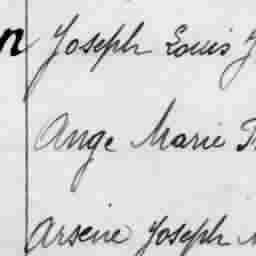 n Joseph Louis J
Ange Marie
Arsène Joseph